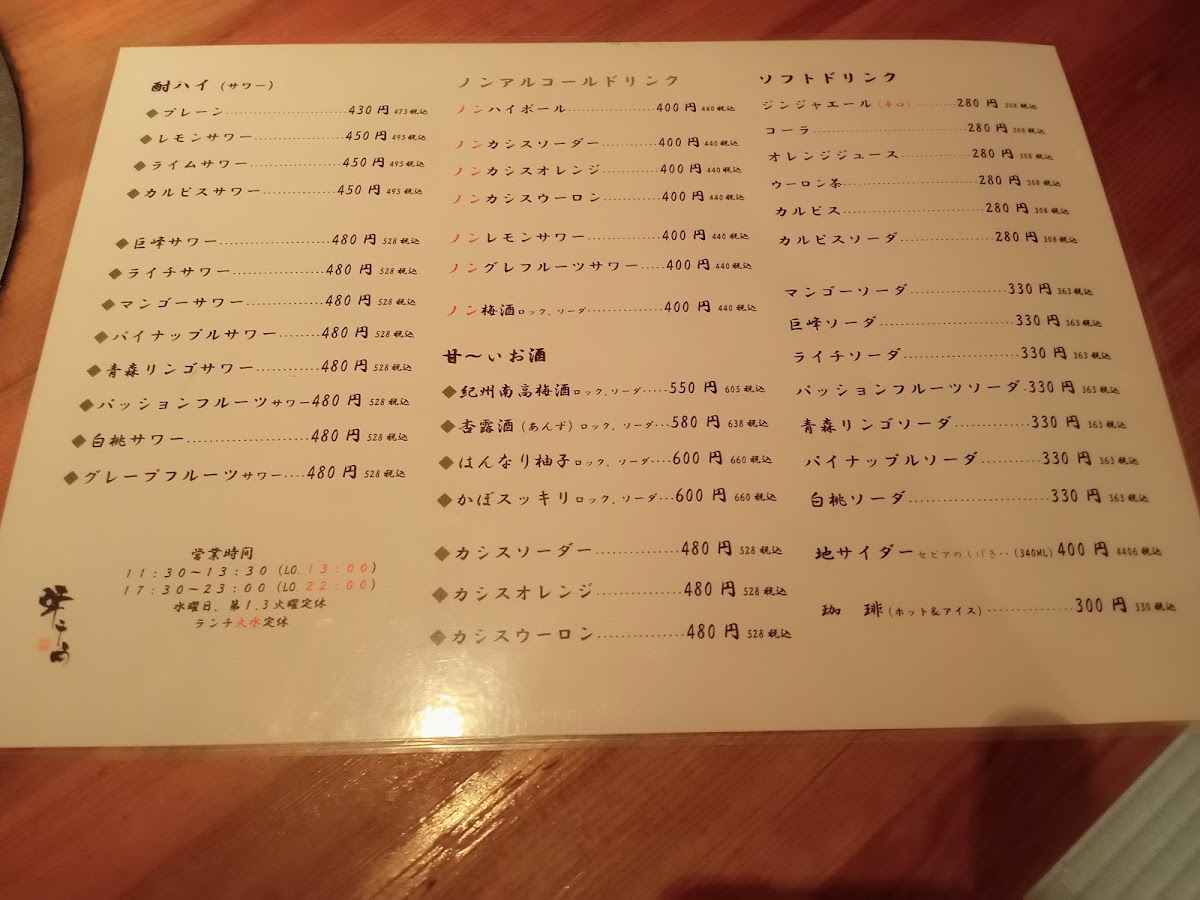 酎ハイ (サワー)
◆プレーン............430円 473税込
◆レモンサワー............450円 495税込
◆ライムサワー............450円 495税込
◆カルピスサワー............450円 495税込
◆巨峰サワー............480円 528税込
◆ライチサワー............480円 528税込
◆マンゴーサワー............480円 528税込
◆パイナップルサワー......480円 528税込
◆青森リンゴサワー.........480円 528税込
◆パッションフルーツサワー480円 528税込
◆白桃サワー............480円 528税込
◆グレープフルーツサワー....480円 528税込
営業時間
11:30～13:30 (LO.13:00)
17:30～23:00 (LO.22:00)
水曜日、第1.3火曜定休
ランチ火水定休
ノンアルコールドリンク
ノンハイボール............400円 440税込
ノンカシスソーダー.........400円 440税込
ノンカシスオレンジ.........400円 440税込
ノンカシスウーロン.........400円 440税込
ノンレモンサワー............400円 440税込
ノングレフルーツサワー.....400円 440税込
ノン梅酒ロック、ソーダ............400円 440税込
甘～いお酒
◆紀州南高梅酒ロック、ソーダ.....550円 605税込
◆杏露酒(あんず)ロック、ソーダ...580円 638税込
◆はんなり柚子ロック、ソーダ....600円 660税込
◆かぼスッキリロック、ソーダ...600円 660税込
◆カシスソーダー............480円 528税込
◆カシスオレンジ............480円 528税込
◆カシスウーロン............480円 528税込
ソフトドリンク
ジンジャエール(辛口)........280円 308税込
コーラ............280円 308税込
オレンジジュース............280円 308税込
ウーロン茶............280円 308税込
カルピス............280円 308税込
カルピスソーダ............280円 308税込
マンゴーソーダ............330円 363税込
巨峰ソーダ............330円 363税込
ライチソーダ............330円 363税込
パッションフルーツソーダ.330円 363税込
青森リンゴソーダ............330円 363税込
パイナップルソーダ.........330円 363税込
白桃ソーダ............330円 363税込
地サイダーセピアのしげき..(340ML)400円 4406税込
珈 琲(ホット＆アイス)............300円 330税込